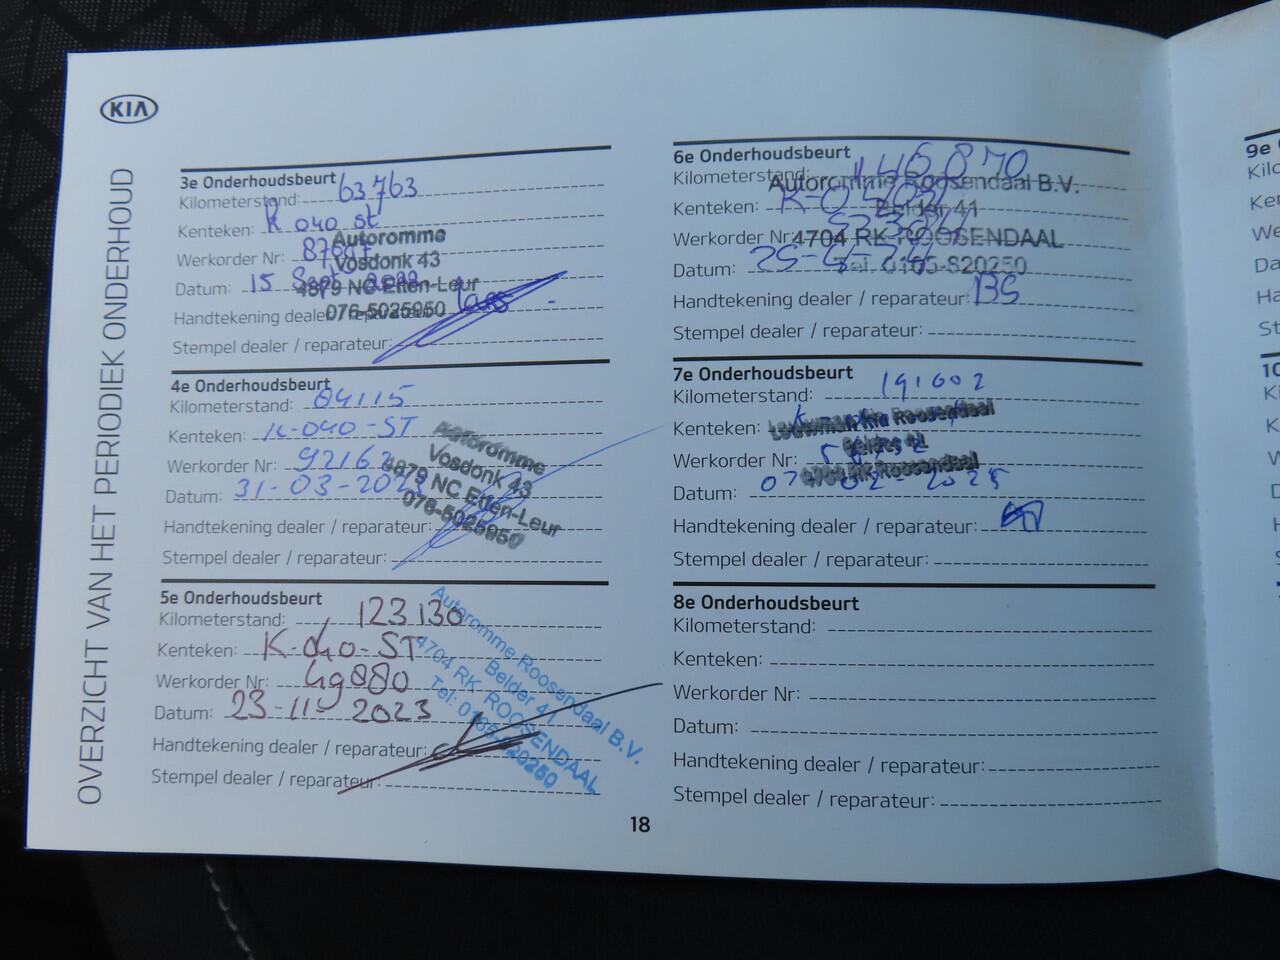 KIA
OVERZICHT VAN HET PERIODIEK ONDERHOUD
3e Onderhoudsbeurt
Kilometerstand: 63763
Kenteken: K 040 st
Werkorder Nr:
Datum: 15 Sept 2022
Handtekening dealer / reparateur:
Stempel dealer / reparateur:
Autoromme
Vosdonk 43
4879 NC Etten-Leur
076-5025950
4e Onderhoudsbeurt
Kilometerstand: 84115
Kenteken: K-040-ST
Werkorder Nr: 92163
Datum: 31-03-2023
Handtekening dealer / reparateur:
Stempel dealer / reparateur:
Autoromme
Vosdonk 43
4879 NC Etten-Leur
076-5025950
5e Onderhoudsbeurt
Kilometerstand: 123130
Kenteken: K-040-ST
Werkorder Nr: 49880
Datum: 23-11-2023
Handtekening dealer / reparateur:
Stempel dealer / reparateur:
Autoromme Roosendaal B.V.
Belder 41
4704 RK ROOSENDAAL
Tel: 0165-520250
6e Onderhoudsbeurt
Kilometerstand: 146870
Kenteken:
Werkorder Nr:
Datum:
Handtekening dealer / reparateur: BS
Stempel dealer / reparateur:
Autoromme Roosendaal B.V.
Belder 41
4704 RK ROOSENDAAL
Tel. 0165-520250
7e Onderhoudsbeurt
Kilometerstand: 191002
Kenteken:
Werkorder Nr:
Datum: 07-02-2025
Handtekening dealer / reparateur:
Stempel dealer / reparateur:
Louwman Kia Roosendaal
Belder 41
4704 RK Roosendaal
8e Onderhoudsbeurt
Kilometerstand:
Kenteken:
Werkorder Nr:
Datum:
Handtekening dealer / reparateur:
Stempel dealer / reparateur:
18
9e
10